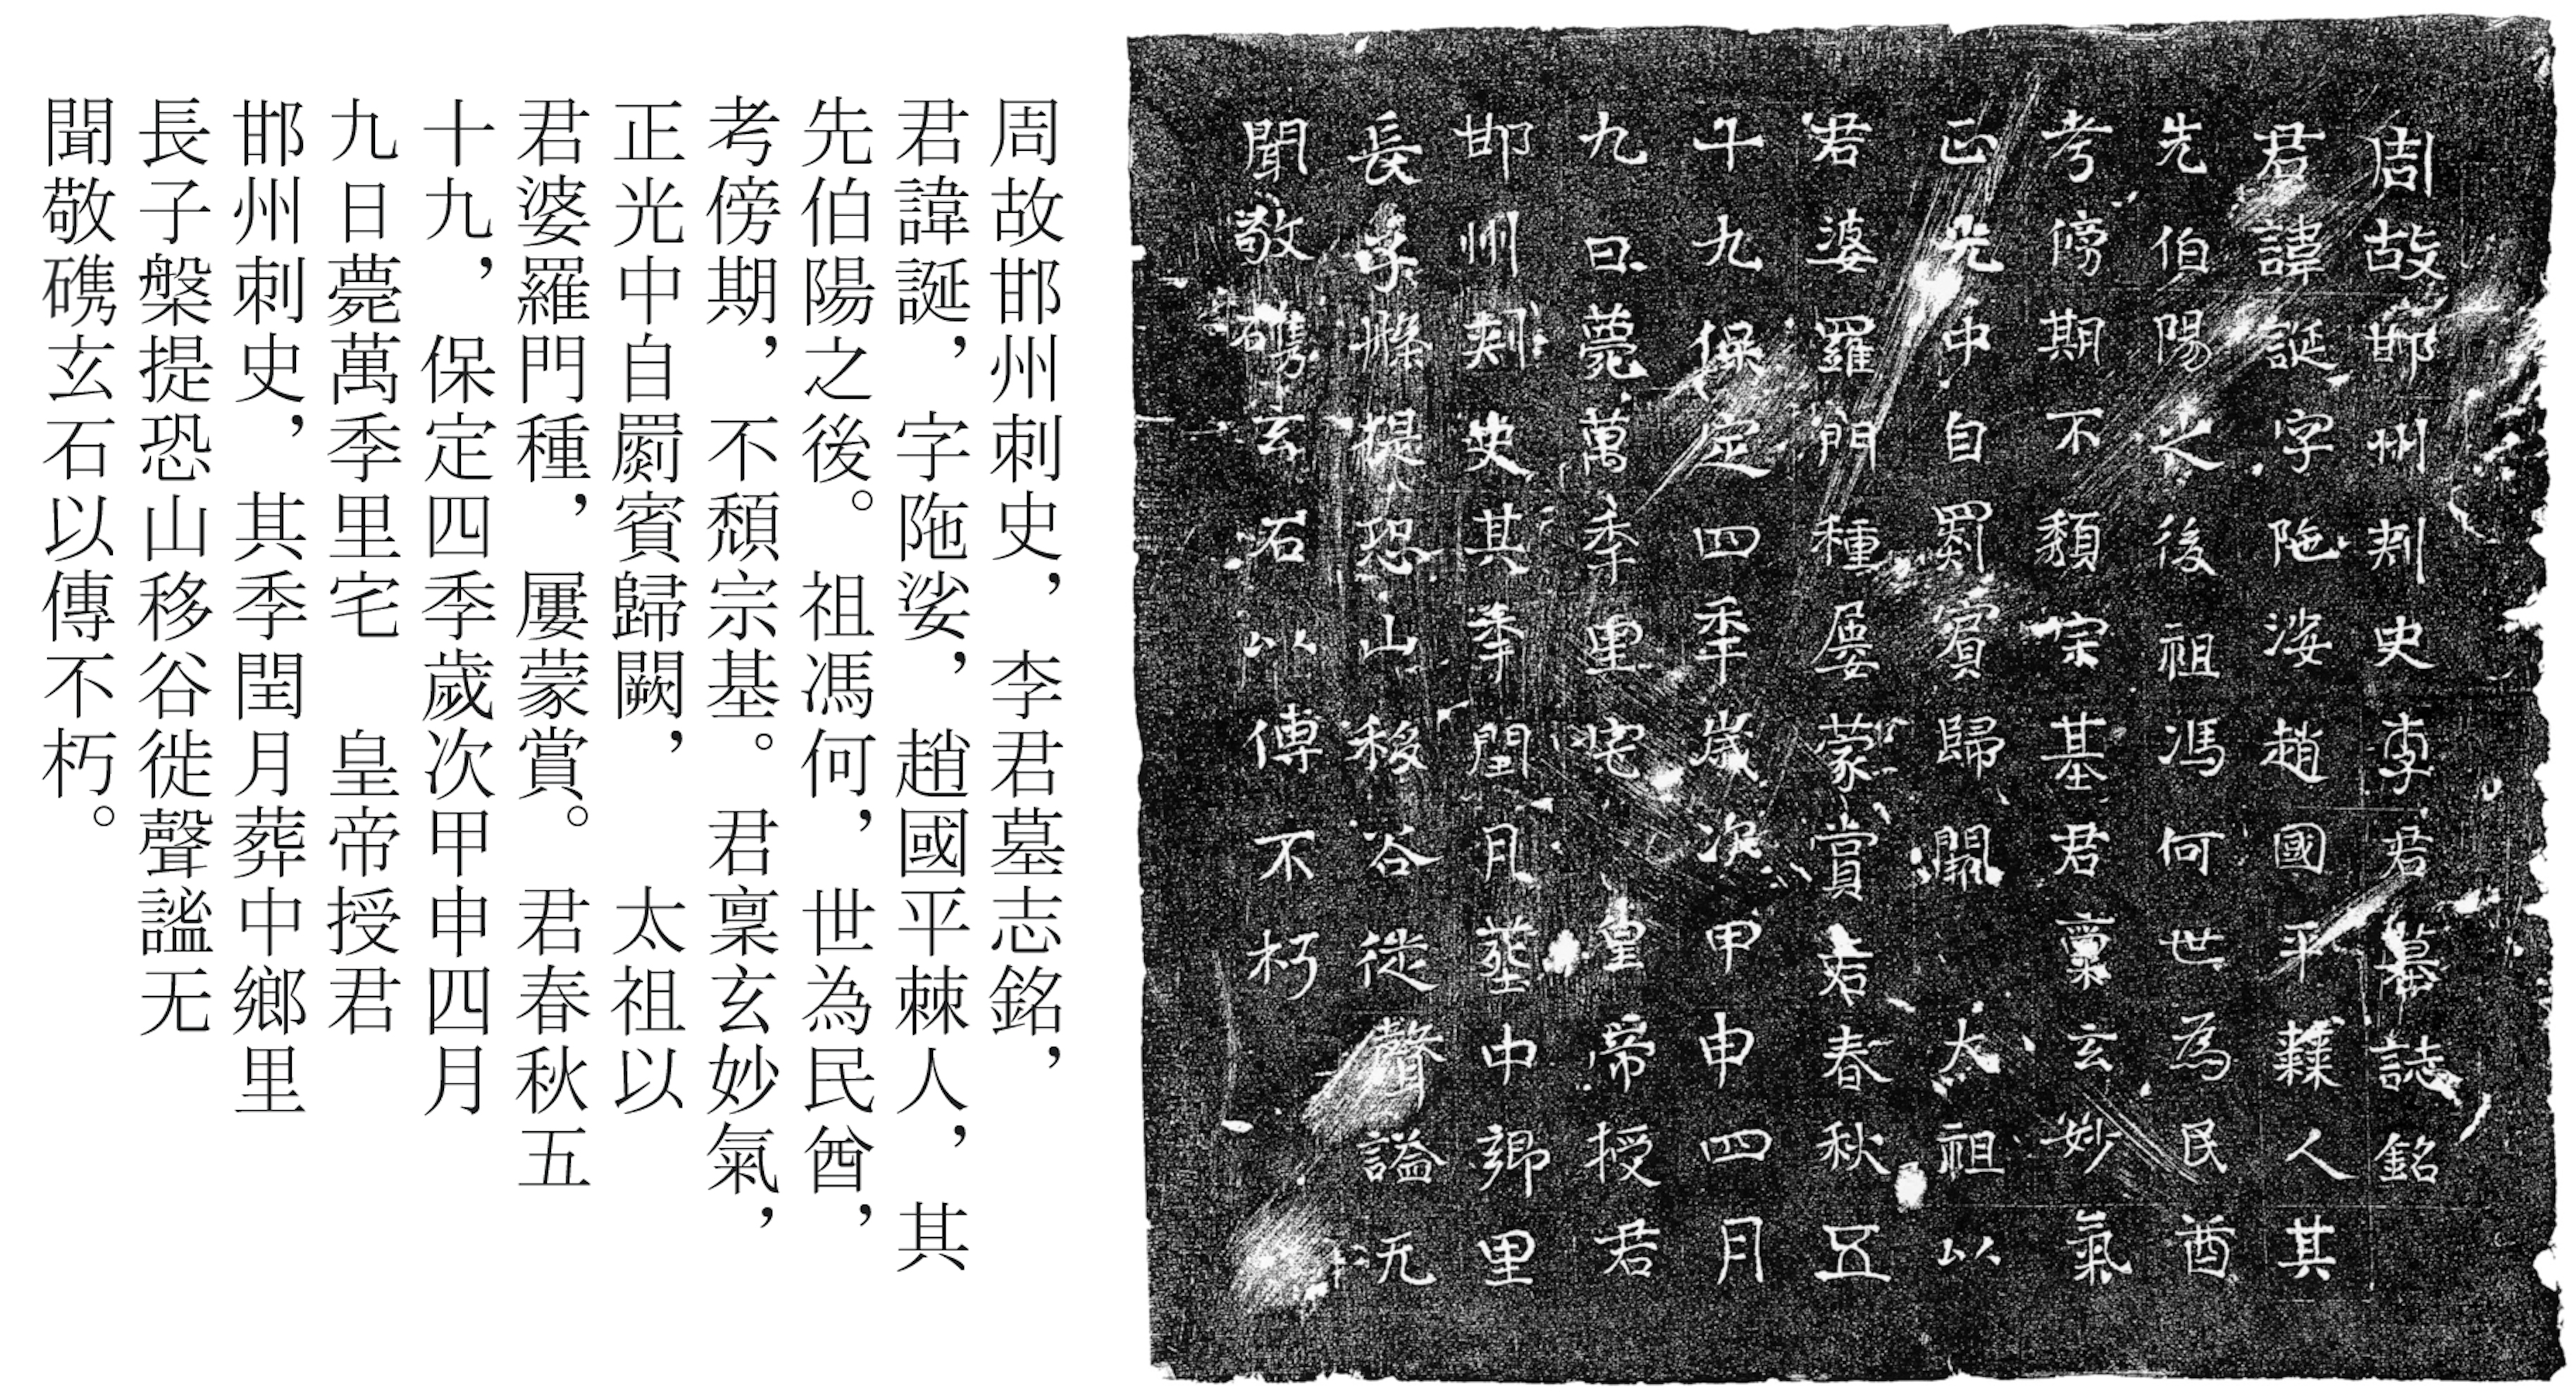 周故邯州刺史李君墓誌銘
君諱誕字陁娑趙國平棘人其
先伯陽之後祖馮何世為民酋
考傍期不頹宗基君稟玄妙氣
正光中自罽賓歸闕　太祖以
君婆羅門種屢蒙賞君春秋五
十九保定四季歲次甲申四月
九日薨萬季里宅　皇帝授君
邯州刺史其季閏月葬中鄉里
長子槃提恐山移谷徙聲謐无
聞敬鐫玄石以傳不朽
周故邯州刺史，李君墓志銘，
君諱誕，字陁娑，趙國平棘人，其
先伯陽之後。祖馮何，世為民酋，
考傍期，不頹宗基。君稟玄妙氣，
正光中自罽賓歸闕，　太祖以
君婆羅門種，屢蒙賞。君春秋五
十九，保定四季歲次甲申四月
九日薨萬季里宅　皇帝授君
邯州刺史，其季閏月葬中鄉里
長子槃提恐山移谷徙聲謐无
聞敬鐫玄石以傳不朽。